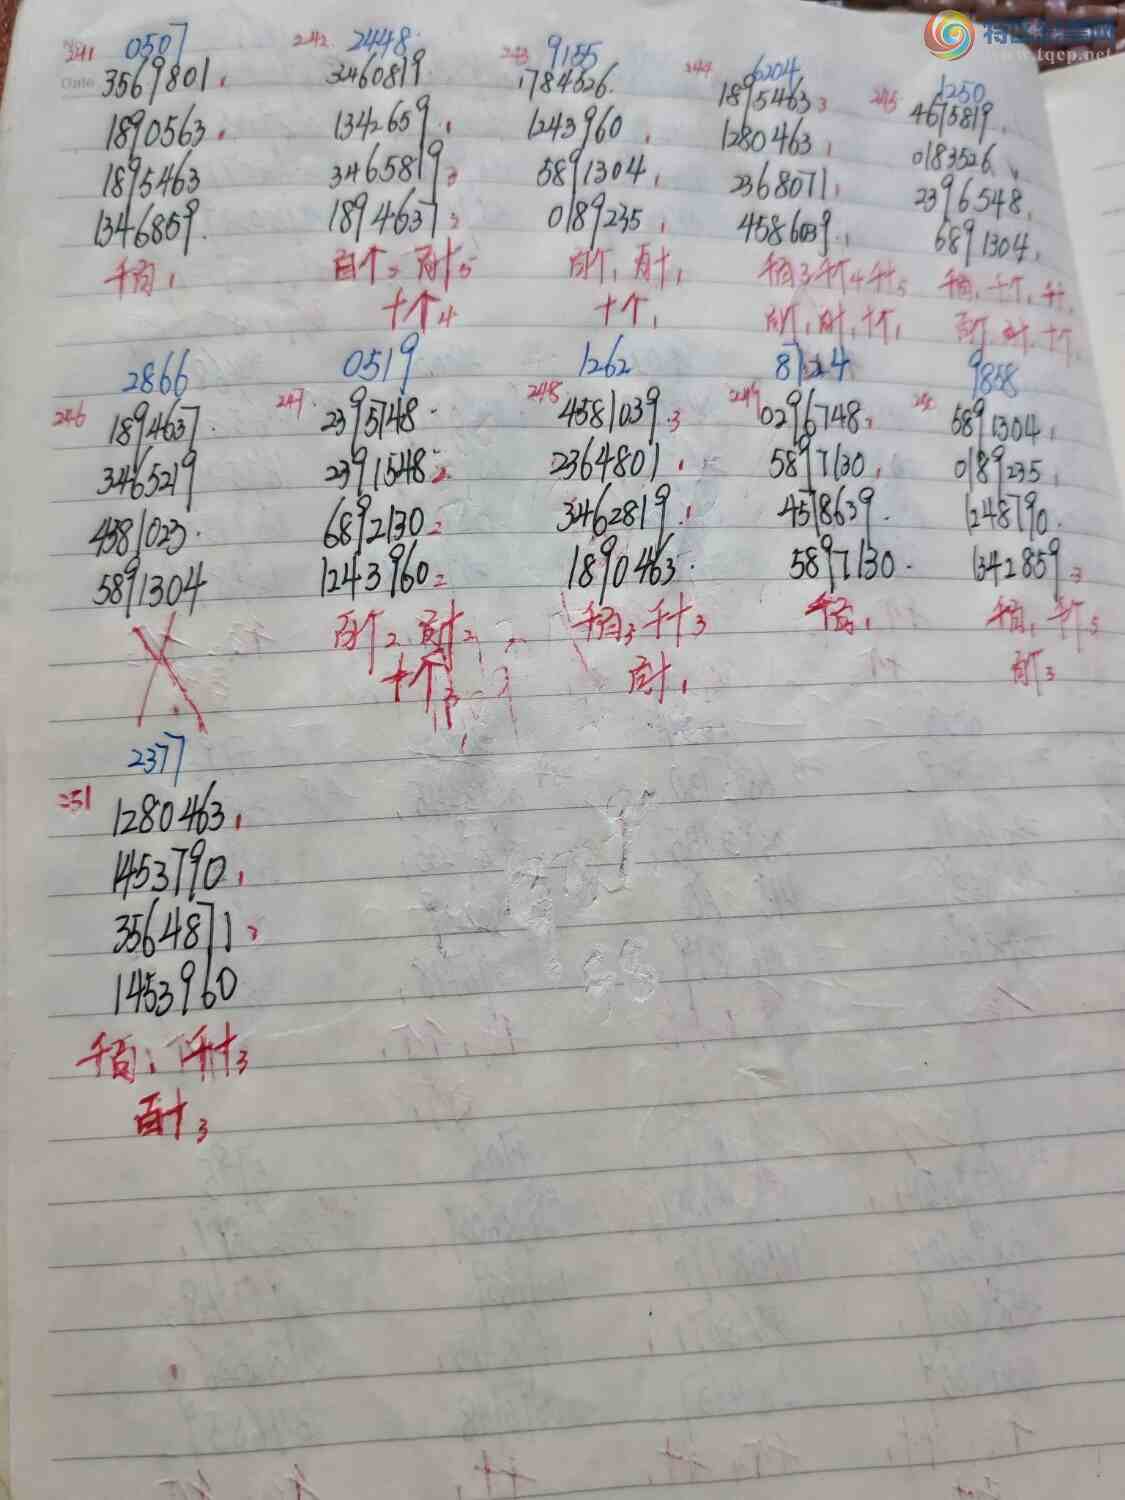 241 0507
3569801.
1890563.
1895463
1346859.
千百1
242. 2448.
3460819
1342659.
3465819 3
1894637 3
百个5 百十5
十个4
243 9155
1784526.
1243960.
5891304.
0189235.
百个1 百十1
十个1
244 6204
1895463 3
1280463 1
2368071 1
4586039.1
千百3 千个4 千十5
百个1 百十1 十个1
245 1250
4675819.
0183526
2396548.
6891304.
千百1 千个1 千十1
百个 百十 十个
2866
246 1894637.
3465219
4581023.
5891304
0519
247. 2395748.
2391548 2.
6892130 2
1243960 2
百个2 百十2
十个3
1262
248 4581039.3
2364801 1
3462819.1
1890463.
千百3 千十3
百十1
8124
249 0296748 3
5897130 1
4578639.
5897130.
千百1
9858
250 5891304 1
0189235 1
1248790.
1342859 3
千百1 千个5
百个3
2377
251
1280463 1
1453790 1
3564871 3
1453960
千百1 千十3
百十3
www.tqcp.net